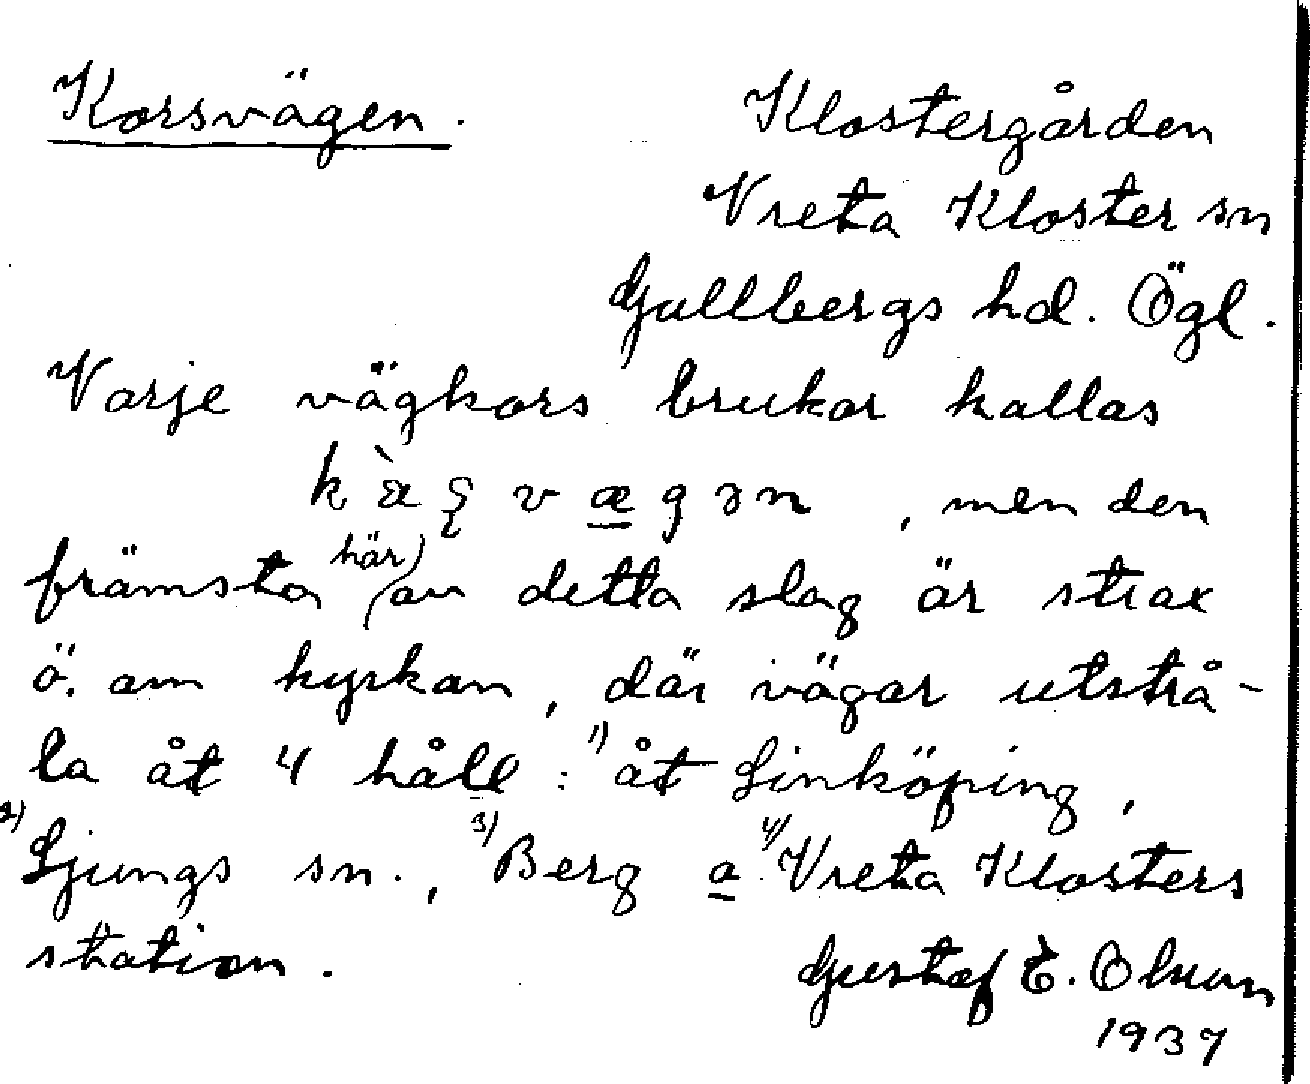 Korsvägen.
Klostergården
Vreta Kloster sn
Gullbergs hd. Ögl.
Varje vägkors brukar kallas
, men den
främsta (här) av detta slag är strax
ö. om kyrkan, där vägar utstrå-
la åt 4 håll: 1) åt Linköping,
2) Ljungs sn., 3) Berg o 4) Vreta Klosters
station.
Gustaf E. Olsson
1937